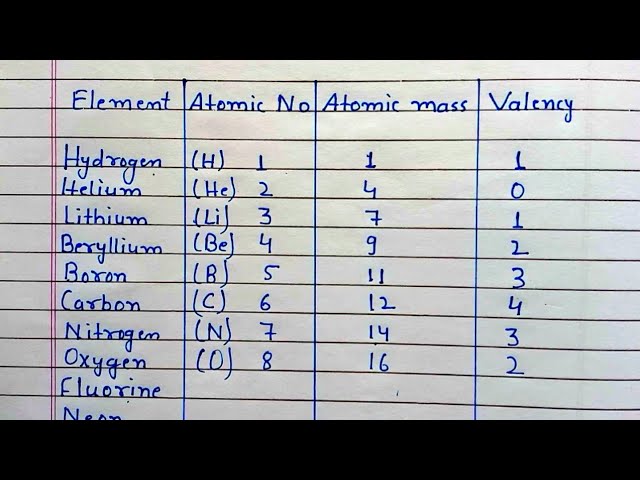 Element Atomic No Atomic mass Valency
Hydrogen (H) 1 1 1
Helium (He) 2 4 0
Lithium (Li) 3 7 1
Beryllium (Be) 4 9 2
Boron (B) 5 11 3
Carbon (C) 6 12 4
Nitrogen (N) 7 14 3
Oxygen (O) 8 16 2
Fluorine
Neon